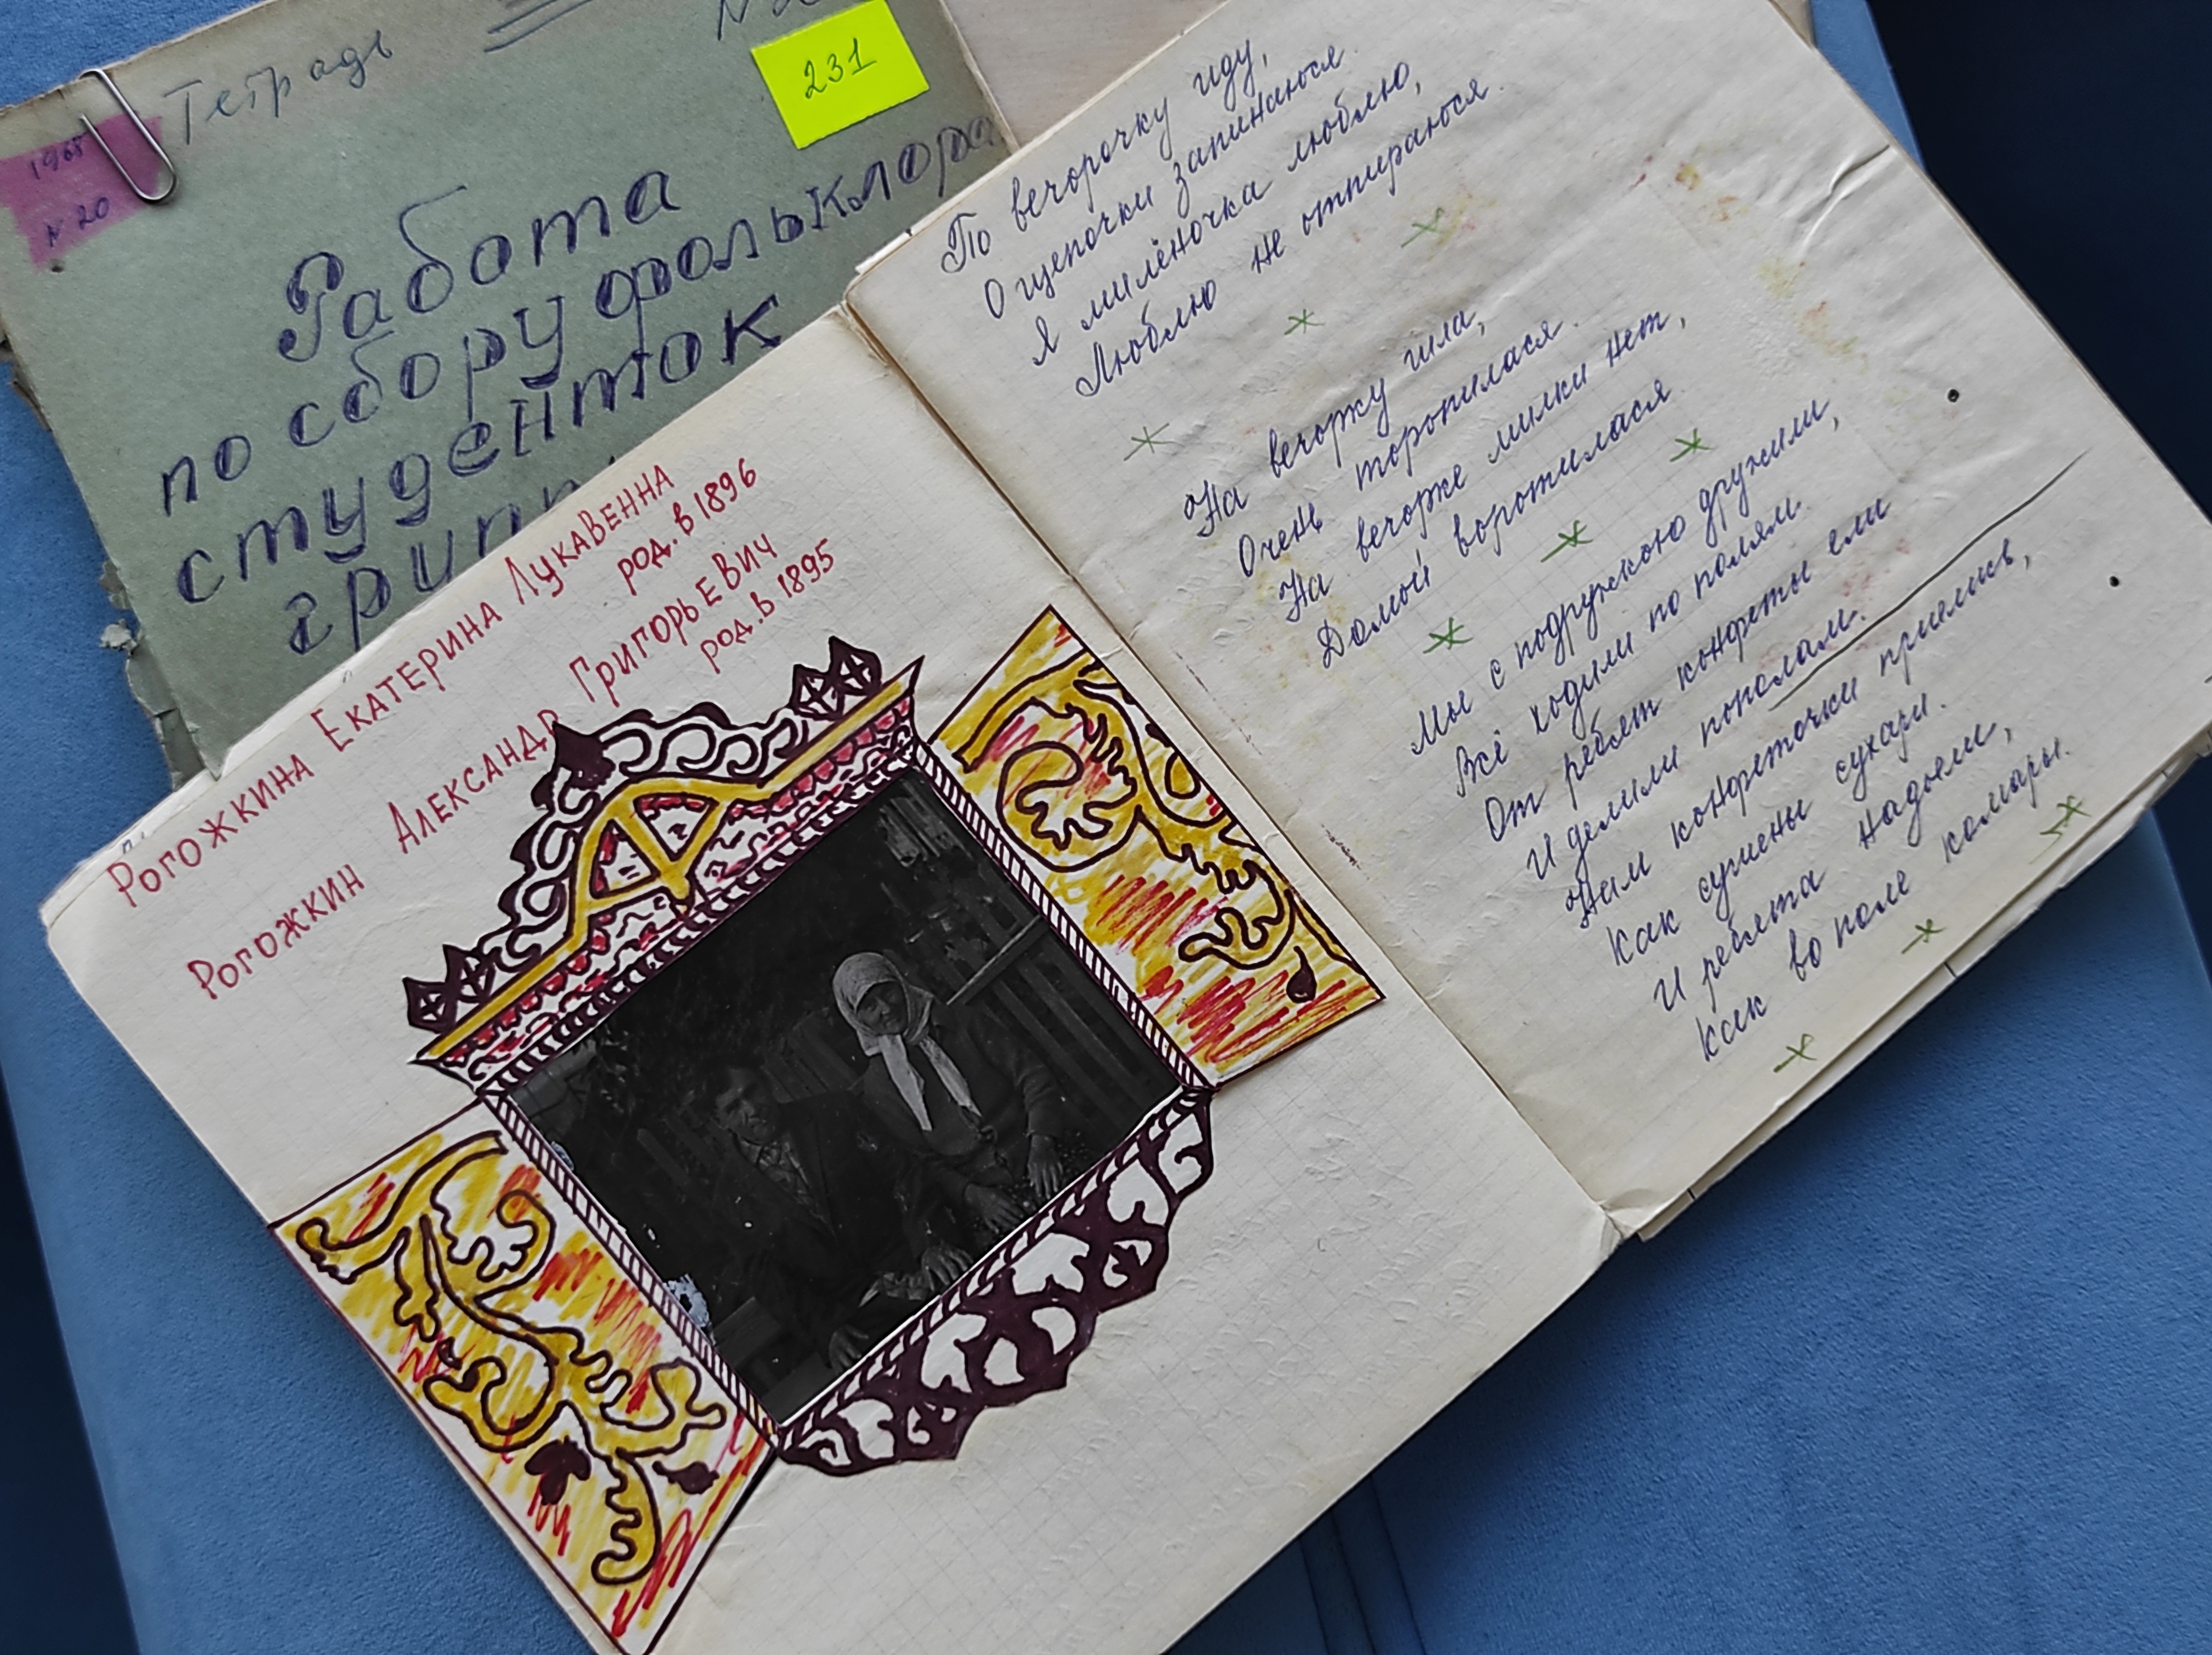 Тетрадь
231
1965
N 20
Работа
по сбору фольклора
студенток
Рогожкина Екатерина Лукавенна
род. в 1896
Рогожкин Александр Григорьевич
род. в 1895
По вечорочку иду,
О щепочки запинаюся.
Я милёночка люблю,
Люблю не отпираюся.
На вечорку шла,
Очень торопилася.
На вечорке милки нет,
Домой воротилася.
Мы с подружкою дружили,
Всё ходили по полям.
От ребят конфеты ели
И делили пополам.
Нам конфеточки приелись,
Как сушены сухари.
И ребята надоели,
Как во поле комары.